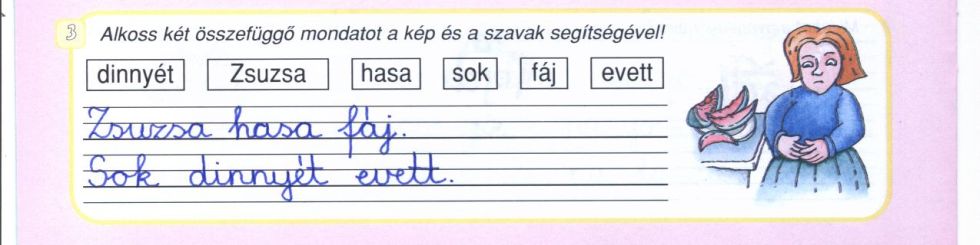 3 Alkoss két összefüggő mondatot a kép és a szavak segítségével!
dinnyét Zsuzsa hasa sok fáj evett
Zsuzsa hasa fáj.
Sok dinnyét evett.